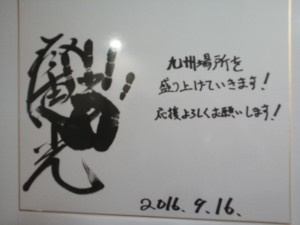 九州場所を
盛り上げていきます!
応援よろしくお願いします!
2016.9.16.